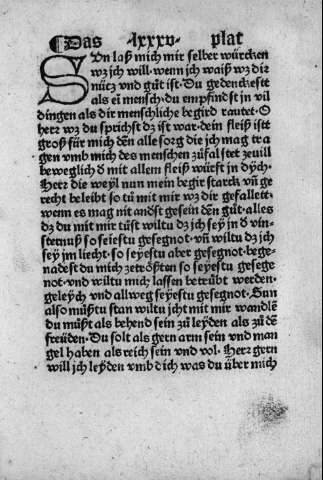 Das lxxxv plat
SUn laß mich mir selber würcken
wz ich will. wenn ich waiß wz dir
nücz vnd gůt ist. Du gedenckestt
als eī mensch. du empfindst in vil
dingen als dir menschliche begird rautet. O
herr wz du sprichst dz ist war. dein fleiß istt
groß für mich den alle sorg die ich mag tra
gen vmb mich des menschen zůfalstet zeuill
beweglich d mit allem fleiß würft in dych.
Herr die weyl nun mein begir starck vn̄ ge
recht beleibt so tů mit mir wz dir gefallett.
wenn es mag nit andst gesein den gůt. alles
dz du mit mir tůst wiltu dz ich sey in d vin-
sternuß so seiestu gesegnot. vn̄ wiltu dz ich
sey jm liecht. so seyestu aber gesegnot. bege-
nadest du mich zetröstten so seyestu gesege
not. vnd wiltu mich lassen betrübt werden.
geleych vnd allweg seyestu gesegnot. Sun
also můstu stan wiltu jch mit mir wandlē
du můst als behend sein zů leyden als zů dē
freüden. Du solt als gern arm sein vnd man
gel haben als reich sein vnd vol. Herr gern
will jch leyden vmb dich was du über mich